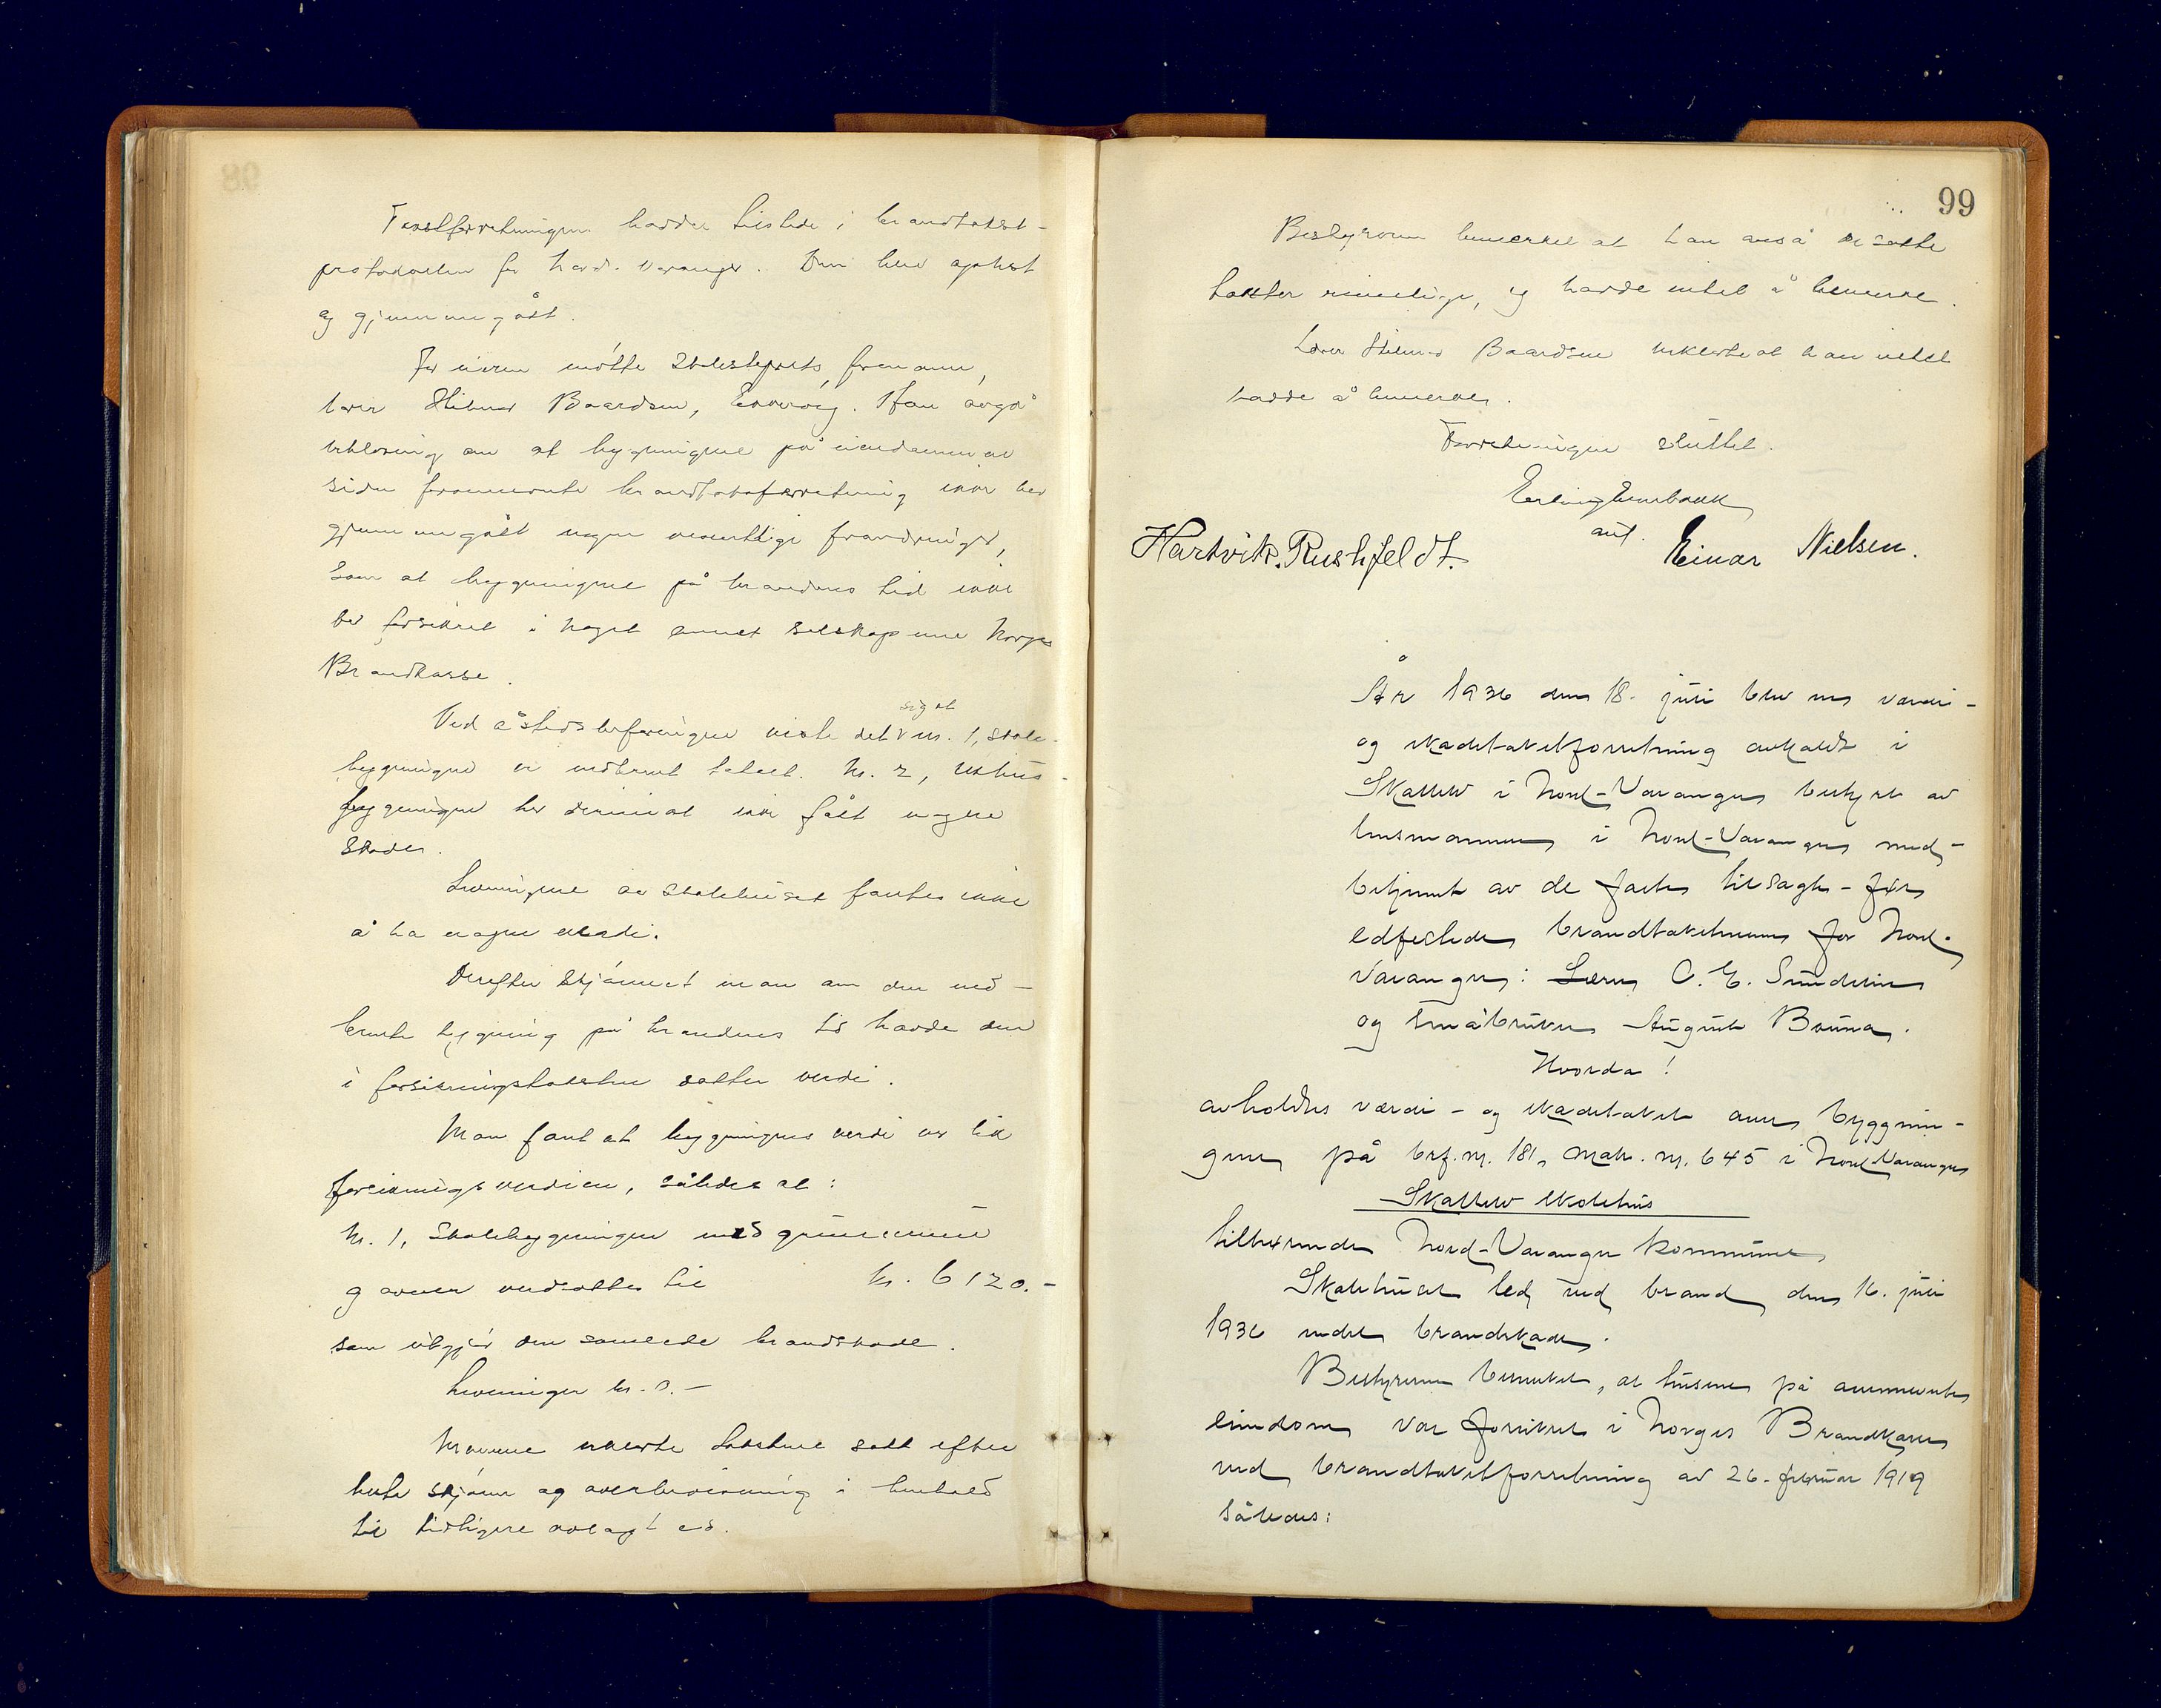 Takstforretningen hadde tilstede i brandtakst-
protokollen for Nord-Varanger. Den blev oplest
og gjennemgått.
For eieren møtte skolestyrets formann,
lærer Hilmar Baardsen, Ekkerøy. Han avga
erklæring om at bygningene på eiendommen
siden forannevnte brandtakstforretning ikke har
gjennemgått nogen vesentlige forandringer,
som at bygningene på brandens tid ikke
var forsikret i noget annet selskap enn Norges
Brandkasse.
Ved åstedsbefaringen viste det sig at nr. 1, skole-
bygningen er nedbrent totalt. Nr. 2, uthus-
bygningen har derimot ikke fått nogen
skader.
Levningene av skolehuset fantes ikke
å ha nogen verdi.
Derefter skjønnet man om den ned-
brente bygning på brandens tid hadde den
i forsikringstaksten satte verdi.
Man fant at bygningens verdi var lik
forsikringsverdien, således at:
Nr. 1, Skolebygningen med grunnmur
og ovner verdsattes til kr. 6120.-
som utgjør den samlede brandskade.
Levninger kr. 0.-
Mennene erklærte takstene satt efter
beste skjønn og overbevisning i henhold
til tidligere avlagt ed.
99
Bestyreren bemerket at han anså de satte
takster rimelige, og hadde intet å bemerke.
Lærer Hilmar Baardsen erklærte at han intet
hadde å bemerke.
Forretningen sluttet.
Erling
aut.
Hartvik Rushfeldt. Einar Nielsen.
År 1936 den 18. juli blev ny verdi-
og skadetakstforretning avholdt i
Skallelv i Nord-Varanger bestyrt av
lensmannen i Nord-Varanger med-
betjent av de faste tilsagte - før
edfestede brandtakstmenn for Nord-
Varanger: Lærer O. E. Sundelin
og småbruker August Bouna.
Hvorda!
avholdtes verdi- og skadetakst over bygnin-
gene på brf. nr. 181, matr. nr. 645 i Nord-Varanger
Skallelv skolehus
tilhørende Nord-Varanger kommune
Skolehuset led ved brand den 16. juli
1936 endel brandskade.
Bestyreren bemerket, at husene på ovennevnte
eiendom var forsikret i Norges Brandkasse
ved brandtakstforretning av 26. februar 1919
således: